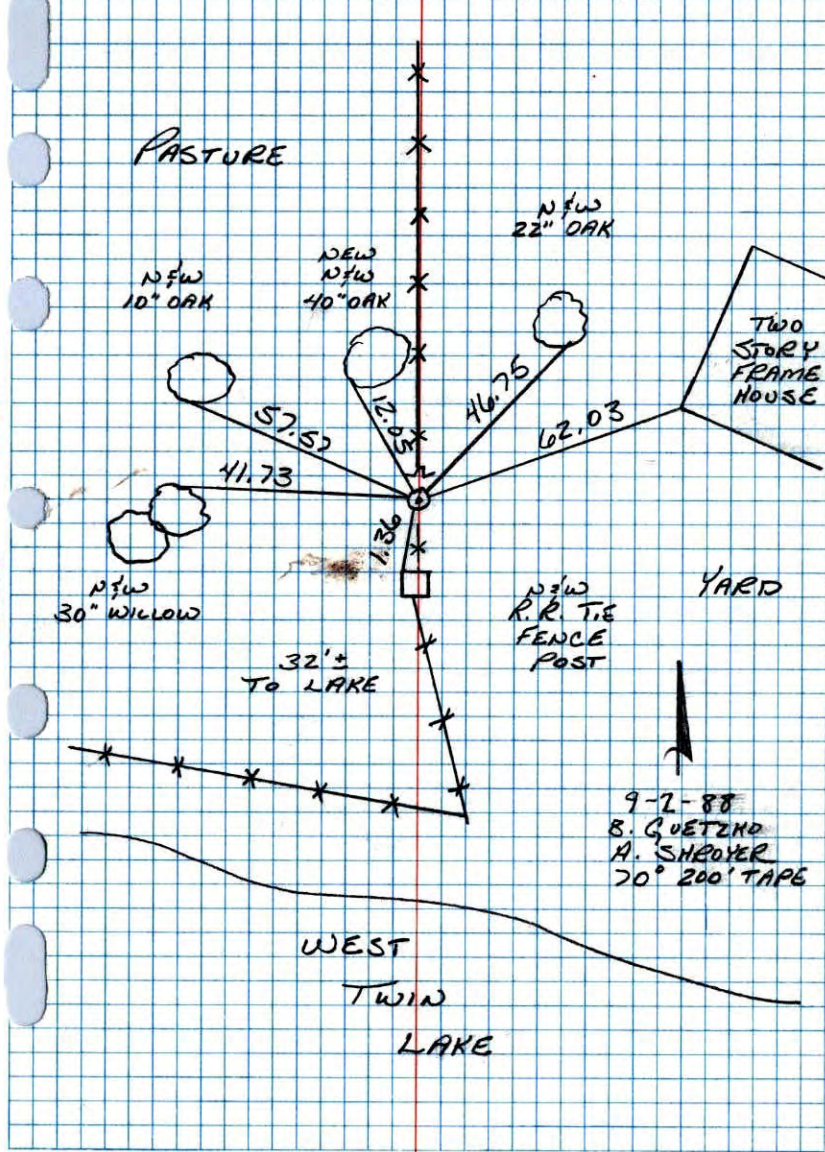 PASTURE
N&W
22" OAK
NEW
N&W
40" OAK
N&W
10" OAK
TWO
STORY
FRAME
HOUSE
57.57
12.05
46.75
62.03
41.73
1.36
N&W
30" WILLOW
N&W
R.R. TIE
FENCE
POST
YARD
32'±
TO LAKE
9-2-88
B. GUETZKO
A. SHROYER
70° 200' TAPE
WEST
TWIN
LAKE